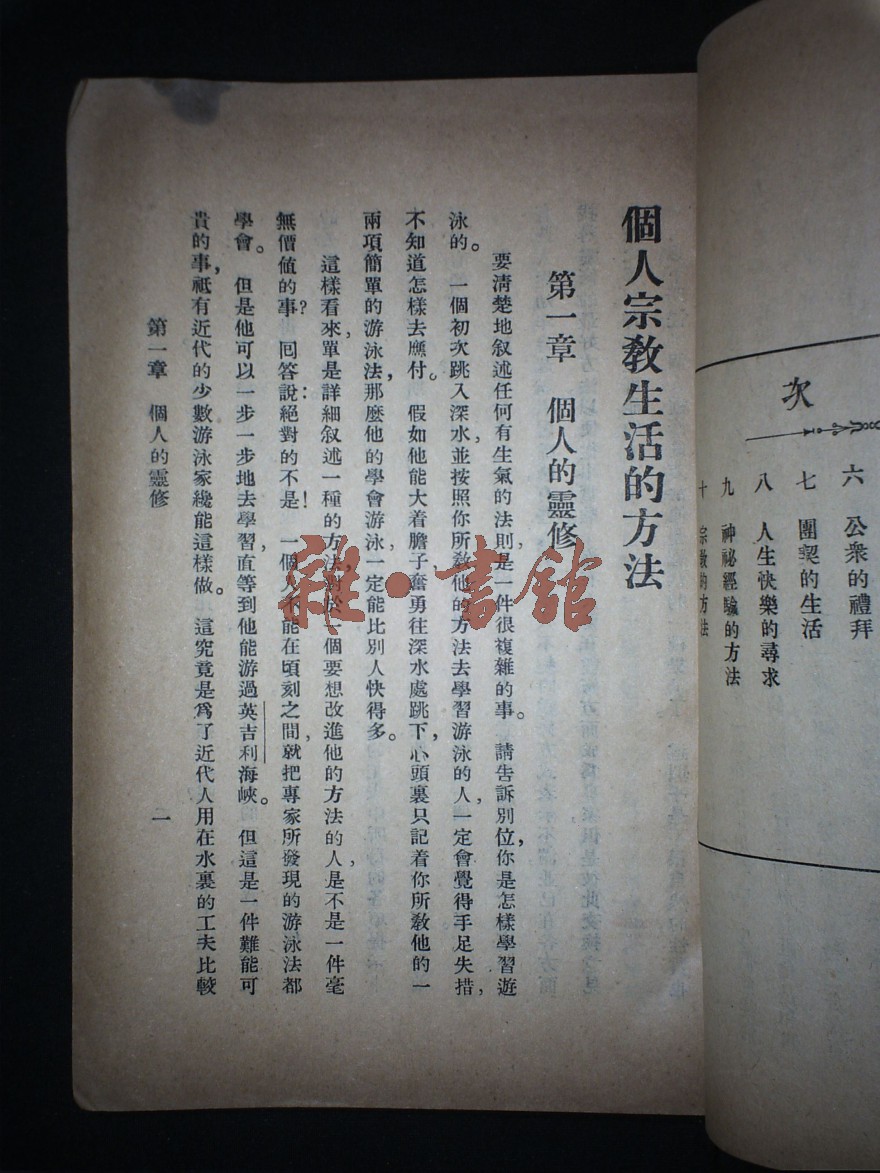 次
六 公衆的禮拜
七 團契的生活
八 人生快樂的尋求
九 神祕經驗的方法
十 宗教的方法
個人宗教生活的方法
第一章 個人的靈修
要淸楚地叙述任何有生氣的法則,是一件很複雜的事。請告訴別位,你是怎樣學習遊
泳的。一個初次跳入深水,並按照你所敎他的方法去學習游泳的人,一定會覺得手足失措,
不知道怎樣去應付。假如他能大着膽子奮勇往深水處跳下,心頭裏只記着你所敎他的一
兩項簡單的游泳法,那麼他的學會游泳,一定能比別人快得多。
這樣看來,單是詳細叙述一種的方法,對於一個要想改進他的方法的人,是不是一件毫
無價値的事?回答說:絕對的不是!一個人不能在頃刻之間,就把專家所發現的游泳法都
學會。但是他可以一步一步地去學習,直等到他能游過英吉利海峽。但這是一件難能可
貴的事,祗有近代的少數游泳家纔能這樣做。這究竟是爲了近代人用在水裏的工夫比較
第一章 個人的靈修
一
雜·書館